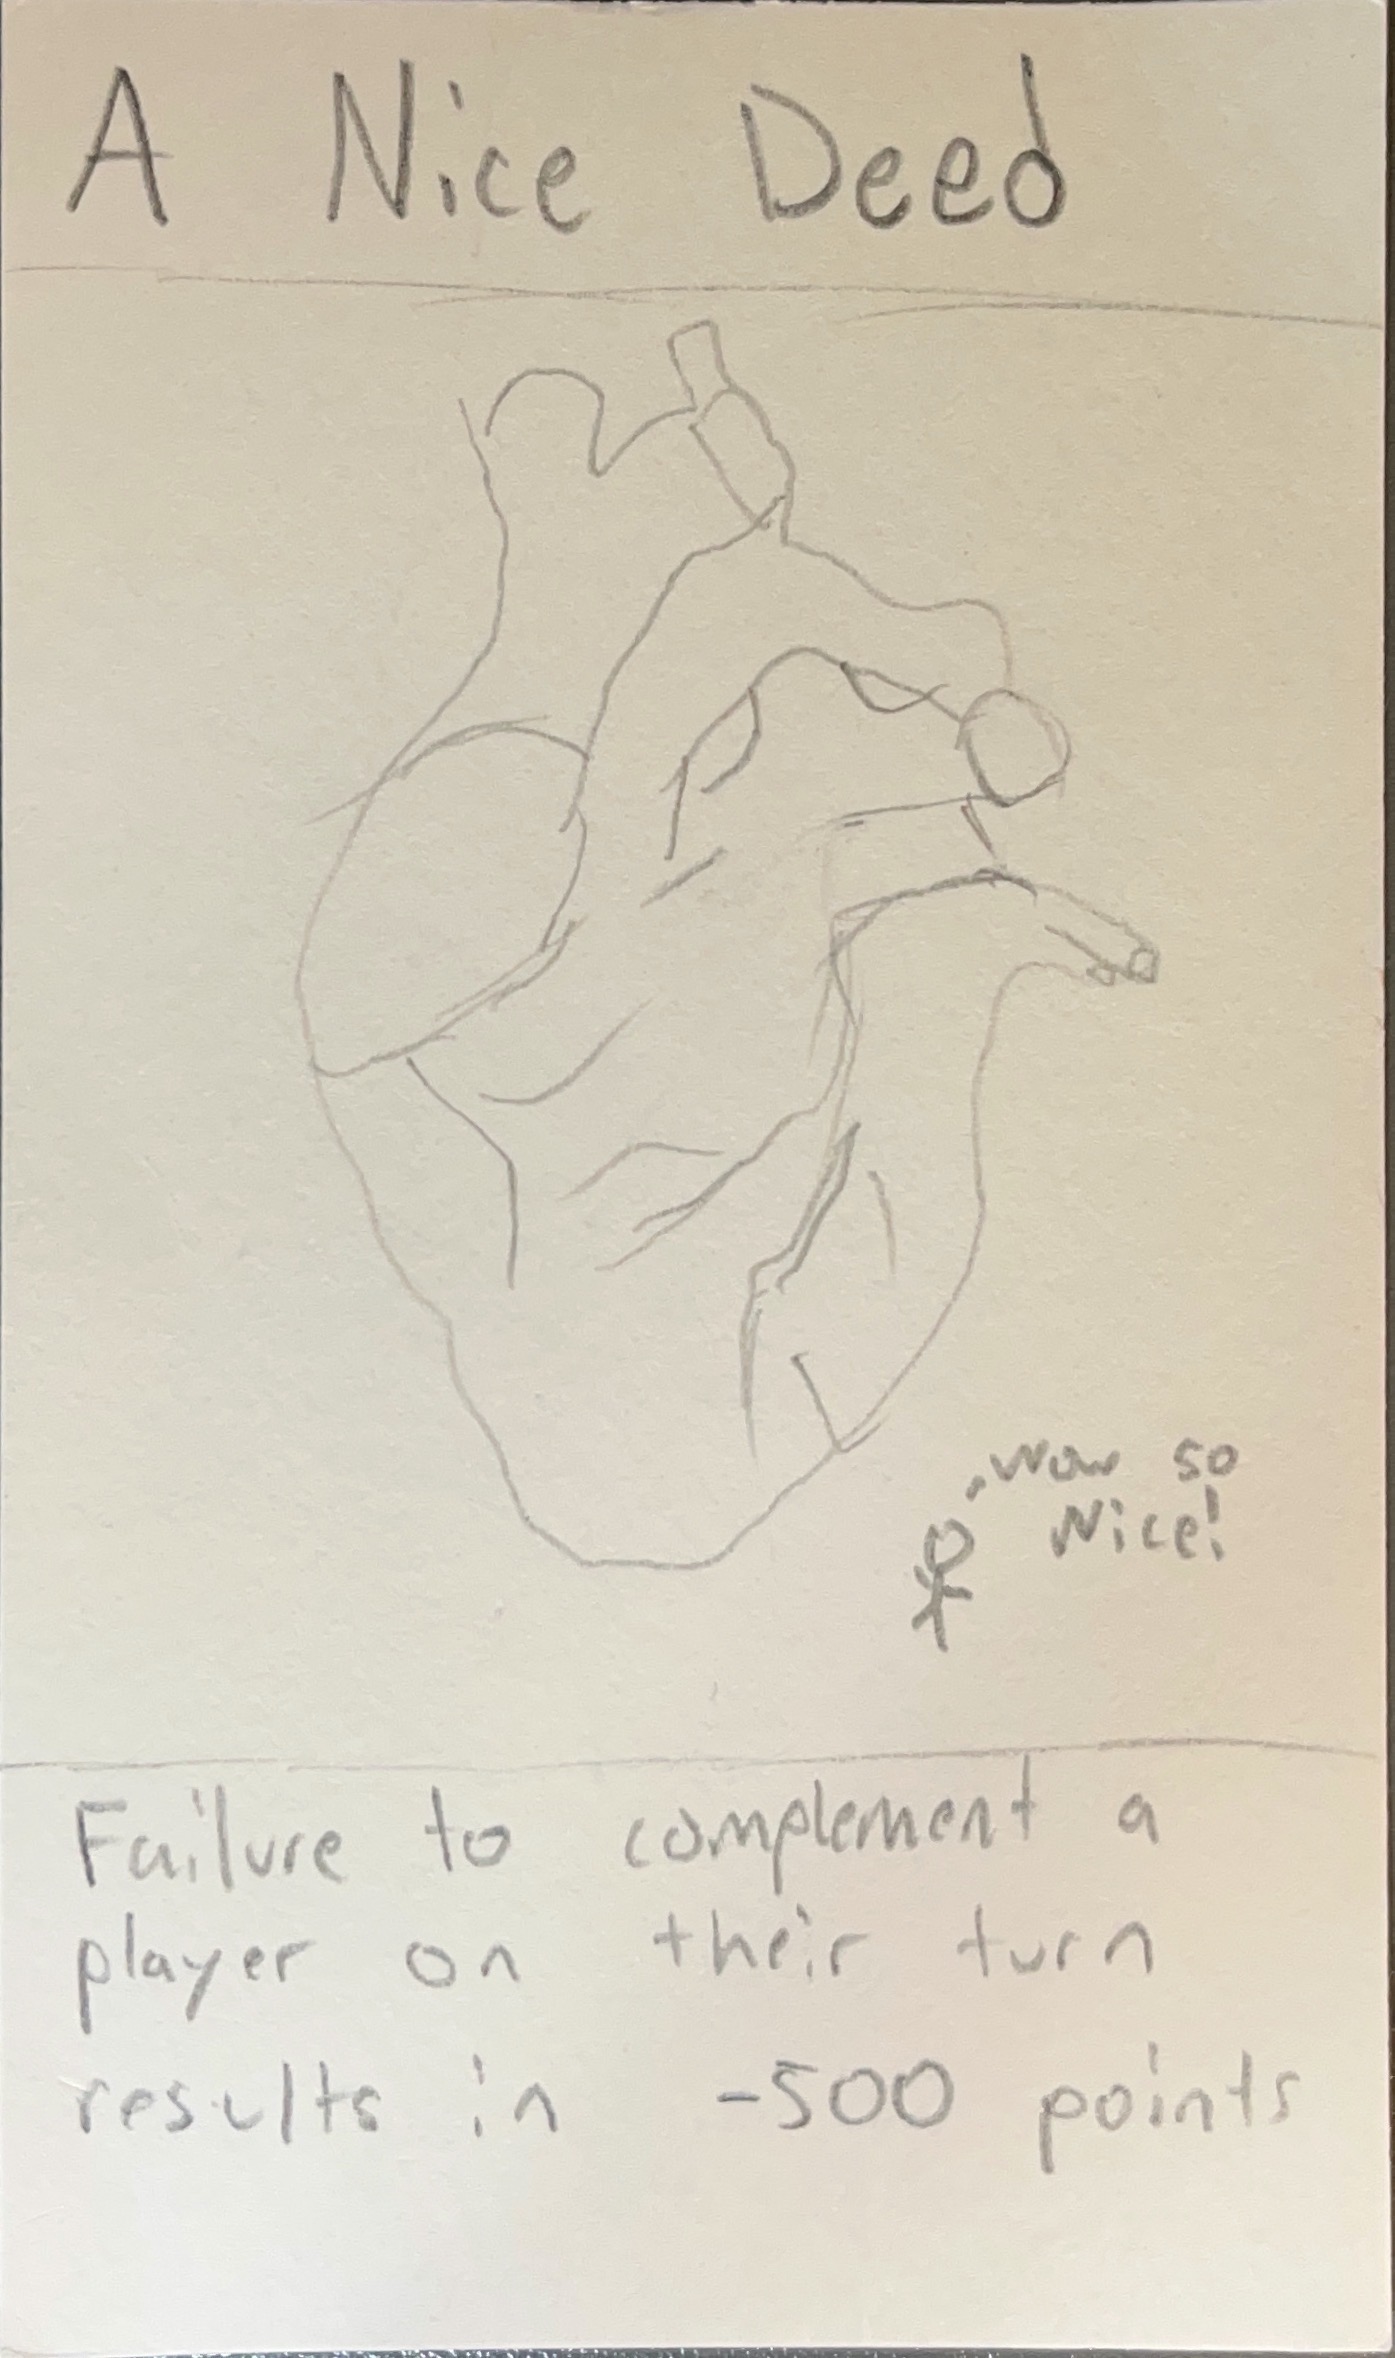 A Nice Deed
Wow so
Nice!
Failure to complement a
player on their turn
results in -500 points